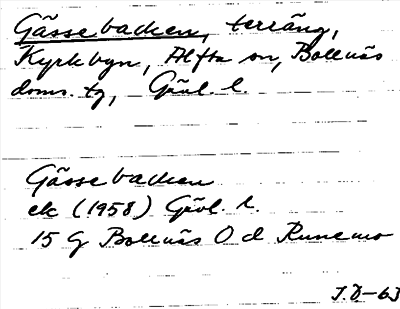 Gässebacken, terräng,
Kyrkbyn, Alfta sn, Bollnäs
doms. tg, Gävl. l.
Gässebacken
ek (1958) Gävl. l.
15 G Bollnäs O d Runemo
J.Ö-63